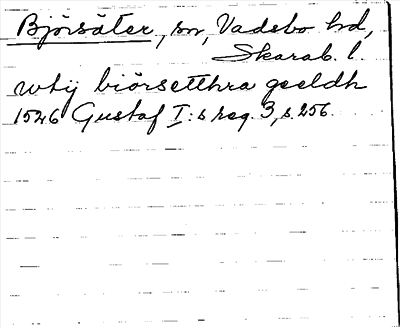 Björsäter, sn, Vadsbo hd,
Skarab. l.
wtij biörsetthra geeldh
1526 Gustaf I:s reg. 3, s. 256.